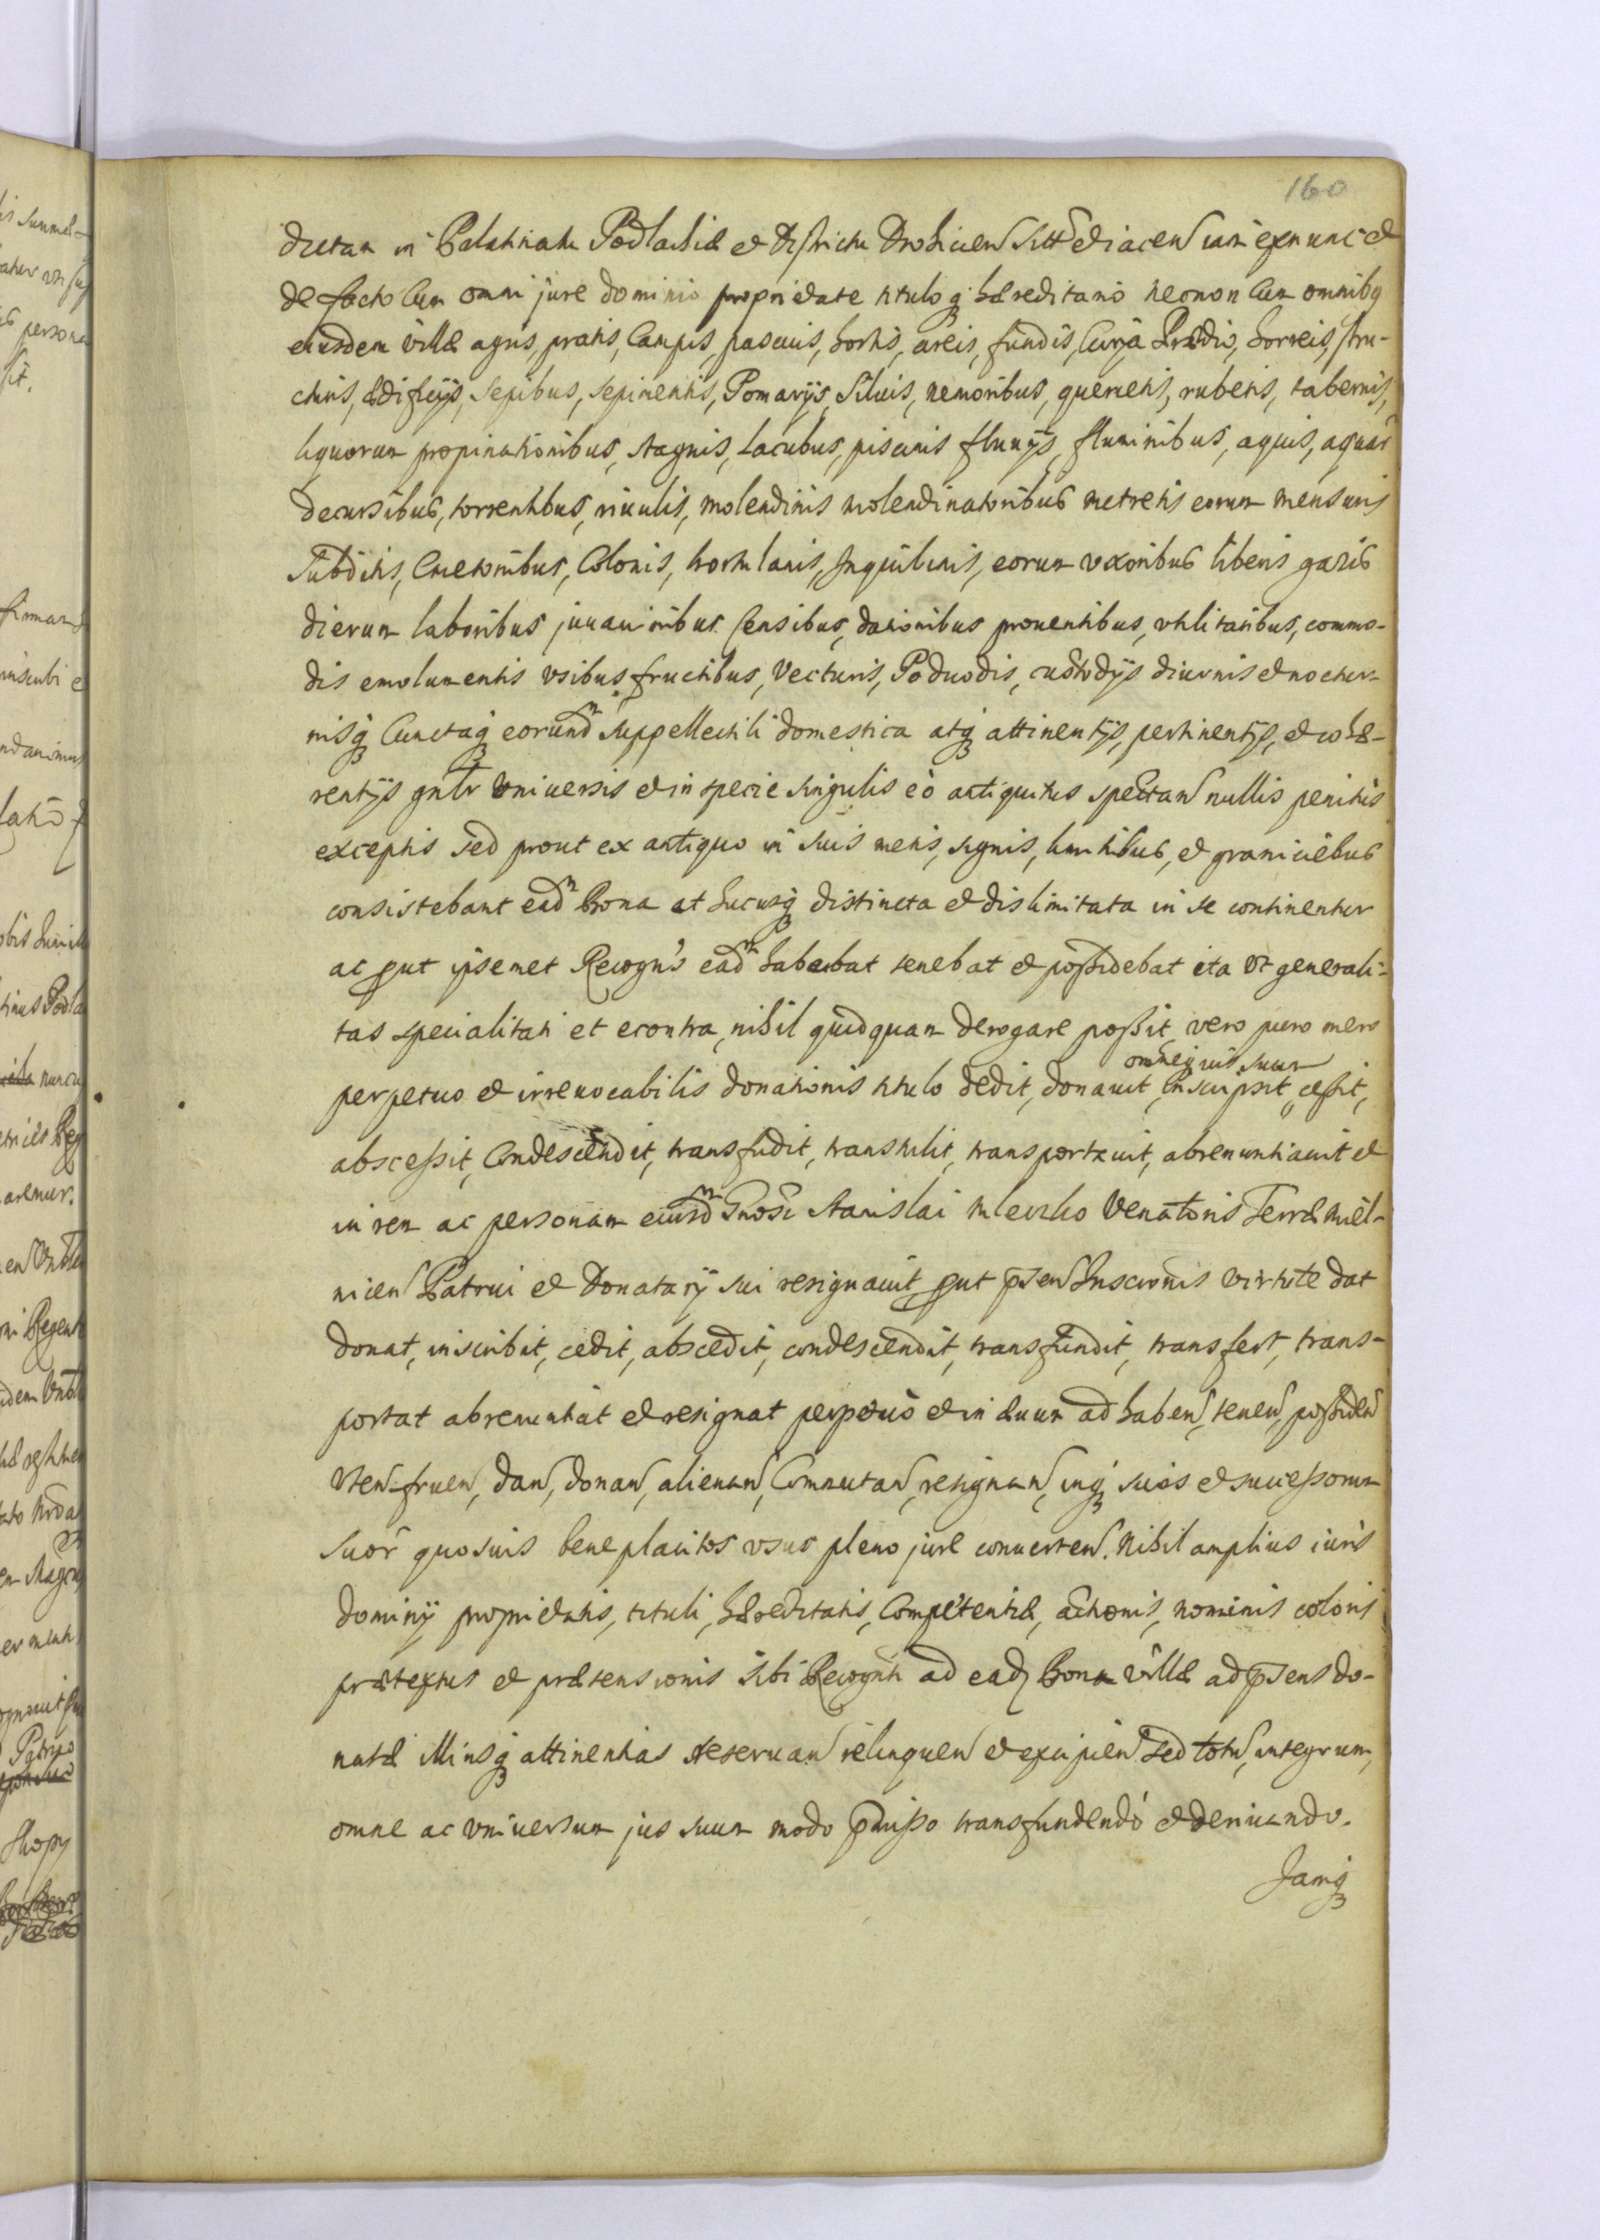 160
dictam in Palatinatu Podlachiæ et Districtu Drohicien sitt et iacen iam ex nunc et
de facto Cum omni jure dominio proprietate titulo q hæreditario necnon Cum omnibq
eiusdem villæ agris, pratis, Campis, pascuis, hortis, areis, fundis, Curia Prædio, horreis, stru-
cturis, ædificijs, sepibus, sepimentis, Pomarijs, Siluis, nemoribus, quercetis, rubetis, tabernis,
liquorum propinationibus, stagnis, Lacubus, piscinis fluuijs, fluminibus, aquis, aquar
decursibus, torrentibus, riuulis, molendinis molendinatoribus metretis eorum mensuris
Subditis, Cmetonibus, Colonis, hortulanis, Inquilinis, eorum vxoribus liberis gazis
dierum laboribus juuaminibus Censibus, dationibus prouentibus, vtilitatibus, commo-
dis emolumentis vsibus, fructibus, Vecturis, Poduodis, custodijs diurnis et noctur-
nisq Cunctaq eorund suppellectili domestica atq attinentijs, pertinentijs, et cohæ-
rentijs gnlr vniuersis et in specie singulis eò antiquitus spectan nullis penitus
exceptis sed prout ex antiquo in suis metis, signis, limitibus, et graniciebus
consistebant ead Bona et hucusq distincta et dislimitata in se continentur
ac put ipsemet Recogns ead habebat tenebat et possidebat ita vt generali-
tas specialitati et econtra, nihil quidquam derogare possit, vero puro mero
perpetuo et irreuocabilis donationis titulo dedit, donauit, Inscripsit, cessit,
omne jus suum
abscessit, Condescendit, transfudit, transtulit, transportauit, abrenuntiauit et
in rem ac personam eiusd Gnosi Stanislai Mleczko Venatoris Terræ Miel-
nicen Patrui et Donatarij sui resignauit put psen Inscrionis virtute dat
donat, inscribit, cedit, abscedit, condescendit, transfundit, transfert, trans-
portat abrenuntiat et resignat perpetuò et in æuum ad haben, tenen, possiden
vten-fruen, dan, donan, alienan, Commutan, resignan, inq suos et successorum
suor quosuis beneplacitos vsus pleno jure conuerten. Nihil amplius iuris
dominij proprietatis, tituli, hæreditatis, Competentiæ, actionis, nominis coloris
prætextus et prætensionis sibi Recognti ad ead Bona villæ ad psens do-
natæ illiusq attinentias reseruan relinquen et excipien sed totu, integrum,
omne ac vniuersum jus suum modo pmisso transfundendo et deriuando.
Jamq